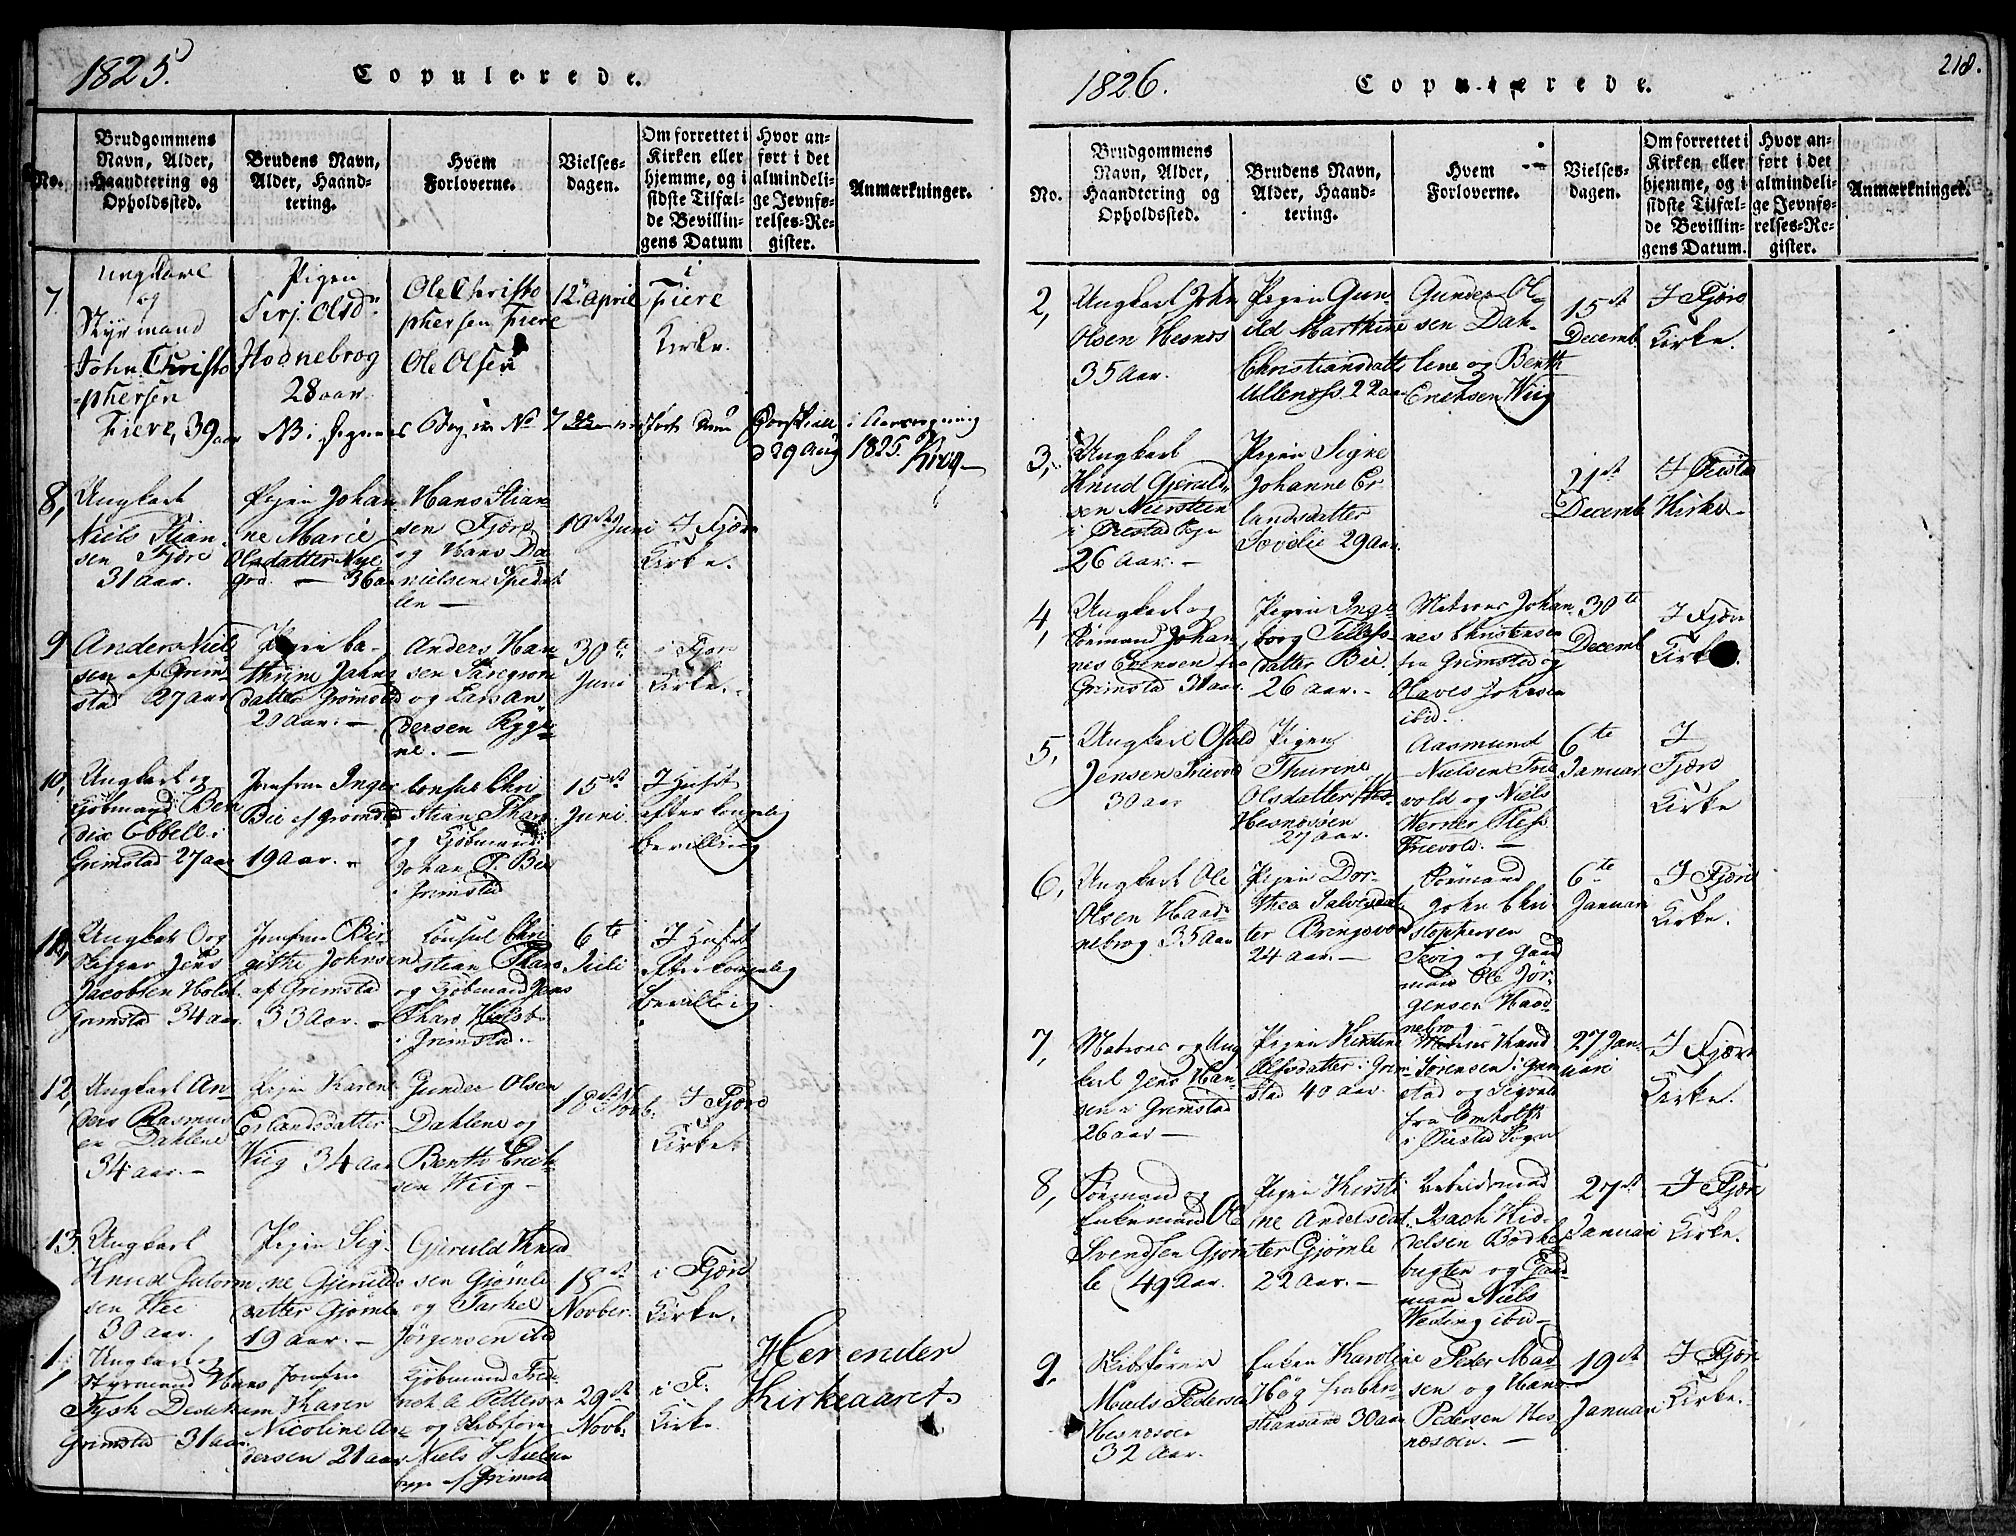 1825.
Copulerede.
No.
Brudgommens
Navn, Alder,
Haandtering og
Opholdssted.
Brudens Navn,
Alder, Haand-
tering.
Hvem
Forloverne.
Vielses-
dagen.
Om forrettet i
Kirken eller
hjemme, og i
sidste Tilfæl-
de Bevillin-
gens Datum
Hvor an-
ført i det
almindeli-
ge Jevnfø-
relses-Re-
gister.
Anmærkninger.
7.
Ungkarl
og
Styrmand
John Christo
-phersen
Fiere, 39 aar
Pigen
Sirj. Olsdr
Hodnebrog
28 aar
Ole Christo
phersen Fiere
Ole Olsen
12 April
i
Fiere
Kirke.
d 29 Aug 1825. Krog
8,
Ungkarl
Niels Stian-
sen Fjære
31 Aar.
Pigen Johan-
ne Marie
Olsdatter Nye
grd. — 36 aar
Hans Stian-
sen Fjære
og Hans Da-
nielsen Speda-
len —
10de Juni
I Fjære
Kirke.
9
Anders Niel-
sen af Grim-
stad 27 aar
Pigen Ca-
thrine Jahns
datter Grømsted
20 Aar. —
Anders Han-
sen
og Lars An-
dersen Rygge-
ne. —
30te
Juni
i Fjære
Kirke.
10,
Ungkarl og
Kjøbmand Ben
dix Ebbell i
Grimstad 27 aar
Jomfru Inger
Bie af Grømsted
19 Aar. -
Consul Chri
stian Thar
og Kjøbmand
Johan P. Bie
i Grimstad
15de
Juni.
I Huset
efter Kongelig
bevilling
11,
Ungkarl og
Skipper Jens
Jacobsen Holst
Grimstad 34 aar.
Jomfru Bir-
githe Johnsen
af Grimstad
33 Aar. -
Consul Chri
stian Thar
og Kjøbmand Jens
Thars Holst
i Grimstad.
6te
Juli
I Huset
efter Kongelig
bevilling
12,
Ungkarl An-
ders Rasmus
en Dahlene
34 Aar. -
Pigen Karen
Erlandsdatter
Wiig 34 aar
Gunder Olsen
Dahlene og
Benth Erich-
sen Wiig -
18de Novb.
I Fjære
Kirke.
13.
Ungkarl
Knud Gutorm
sen Hei
30 Aar.
Pigen Sig-
ne Gjerulds
datter Gjømle
19 Aar. -
Gieruld Knud
sen Gjømle
og Tarkel
Jørgensen ibid
18de
Novber.
i Fjære
Kirke.
1
Ungkarl og
Styrmand Hans
Dedekam
Grimstad 31 aar.
Jomfru
Karen
Nicoline An-
dersen 21 aar
Kjøbmand Fre-
Petterson
og Skibsfører
Niels S Nielsen
begge af Grimstad
29de
Novb.
i F.
Kirke
Her ender
Kirkeaaret.
1826.
Copulerede.
218.
No.
Brudgommens
Navn, Alder,
Haandtering og
Opholdssted.
Brudens Navn,
Alder, Haand-
tering.
Hvem
Forloverne.
Vielses-
dagen.
Om forrettet i
Kirken eller
hjemme, og i
sidste Tilfæl-
de Bevillin-
gens Datum.
Hvor an-
ført i det
almindeli-
ge Jevnfø-
relses-Re-
gister.
Anmærkninger.
2,
Ungkarl John
Olsen Hesnæs
35 Aar.
Pigen Gun-
ild Marthine
Christiansdatt.
Ullenæss 22 aar
Gunder Ol-
sen Dah-
lene og Benth
Erichsen Wiig
15de
Decemb.
I Fjære
Kirke.
3,
Ungkarl
Knud Gjeruld-
sen Neersteen
i Øiestad Sogn
26 Aar. -
Pigen Signe
Johanne Er
landsdatter
Søvelie 29 Aar.
21de
Decemb.
I Øiestad
Kirke -
4,
Ungkarl og
Sømand Johan-
nes Evensen fra
Grimstad 31 aar.
Pigen Inge-
borg Tellefs-
datter Bie.
26 Aar. -
Matros Johan-
nes Christensen
fra Grimsted og
Olaves Johnsen
ibid.
30te
Decemb
I Fjære
Kirke.
5,
Ungkarl Osuld
Jensen Frievold
30 aar
Pigen
Thurine
Olsdatter
Hesnæsøen
27 aar.
Aasmund
Nielsen Frie-
vold og Niels
Werner
Frievold. -
6te
Januar
I
Fjære
Kirke
6,
Ungkarl Ole
Olsen Haad-
nebrog 35 Aar
Pigen Dor-
thea Salvesdat-
ter Bringsvor
24 aar. -
Sømand
John Chri-
stophersen
Sevig og Gaard
mand Ole Jør-
gensen Haad-
nebrog -
6te
Januari
I Fjære
Kirke.
7,
Matros og Ung
karl Jens Han-
sen i Grimstad
26 aar -
Pigen Kirstine
Olsdatter i Grim
stad 40 aar.
Matros Knud
Sørensen i Grim
stad og Sigvald
fra Omholt
i Øiestad Sogn
27 Jan-
uari
I Fjære
Kirke.
8,
Sømand og
Enkemand Ole
Svendsen Gjøm-
le 49 Aar.
Pigen Kirsti-
ne Andersdat.
ter Gjømle
22 Aar. -
Arbeidsmand
Isach Kid-
delsen Bødke-
bugten og Gaard
mand Niels
Weding ibid -
27de
Januari
I Fjære
Kirke.
9.
Skibsfører
Mads Pedersen
Hesnæsøen
32 Aar.
Enken Karoline
Høg fra Chri-
stiansand 30 aar
Peder Mad-
sen og Hans
Pedersen Hes-
næsøen. -
19de
Januari
I Fjære
Kirke.